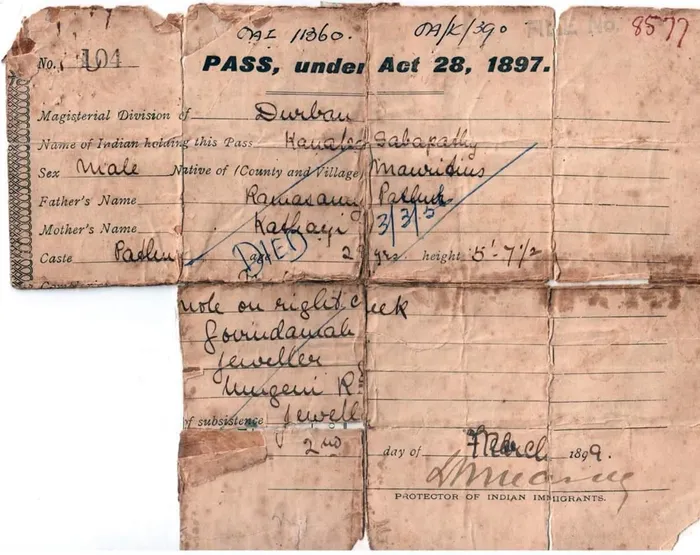 OAI 11360. OA/K/390 FILE No. 8577
No. 104
PASS, under Act 28, 1897.
Magisterial Division of Durban
Name of Indian holding this Pass Sabapathy
Sex Male Native of (County and Village) Mauritius
Father's Name Ramasamy
Mother's Name Kathayi 3/3/5
Caste age 2 yrs. height 5'-7½
DIED
mole on right cheek
Govindamah
Jeweller
Umgeni R
of subsistence Jewell
2nd day of March 1899.
PROTECTOR OF INDIAN IMMIGRANTS.